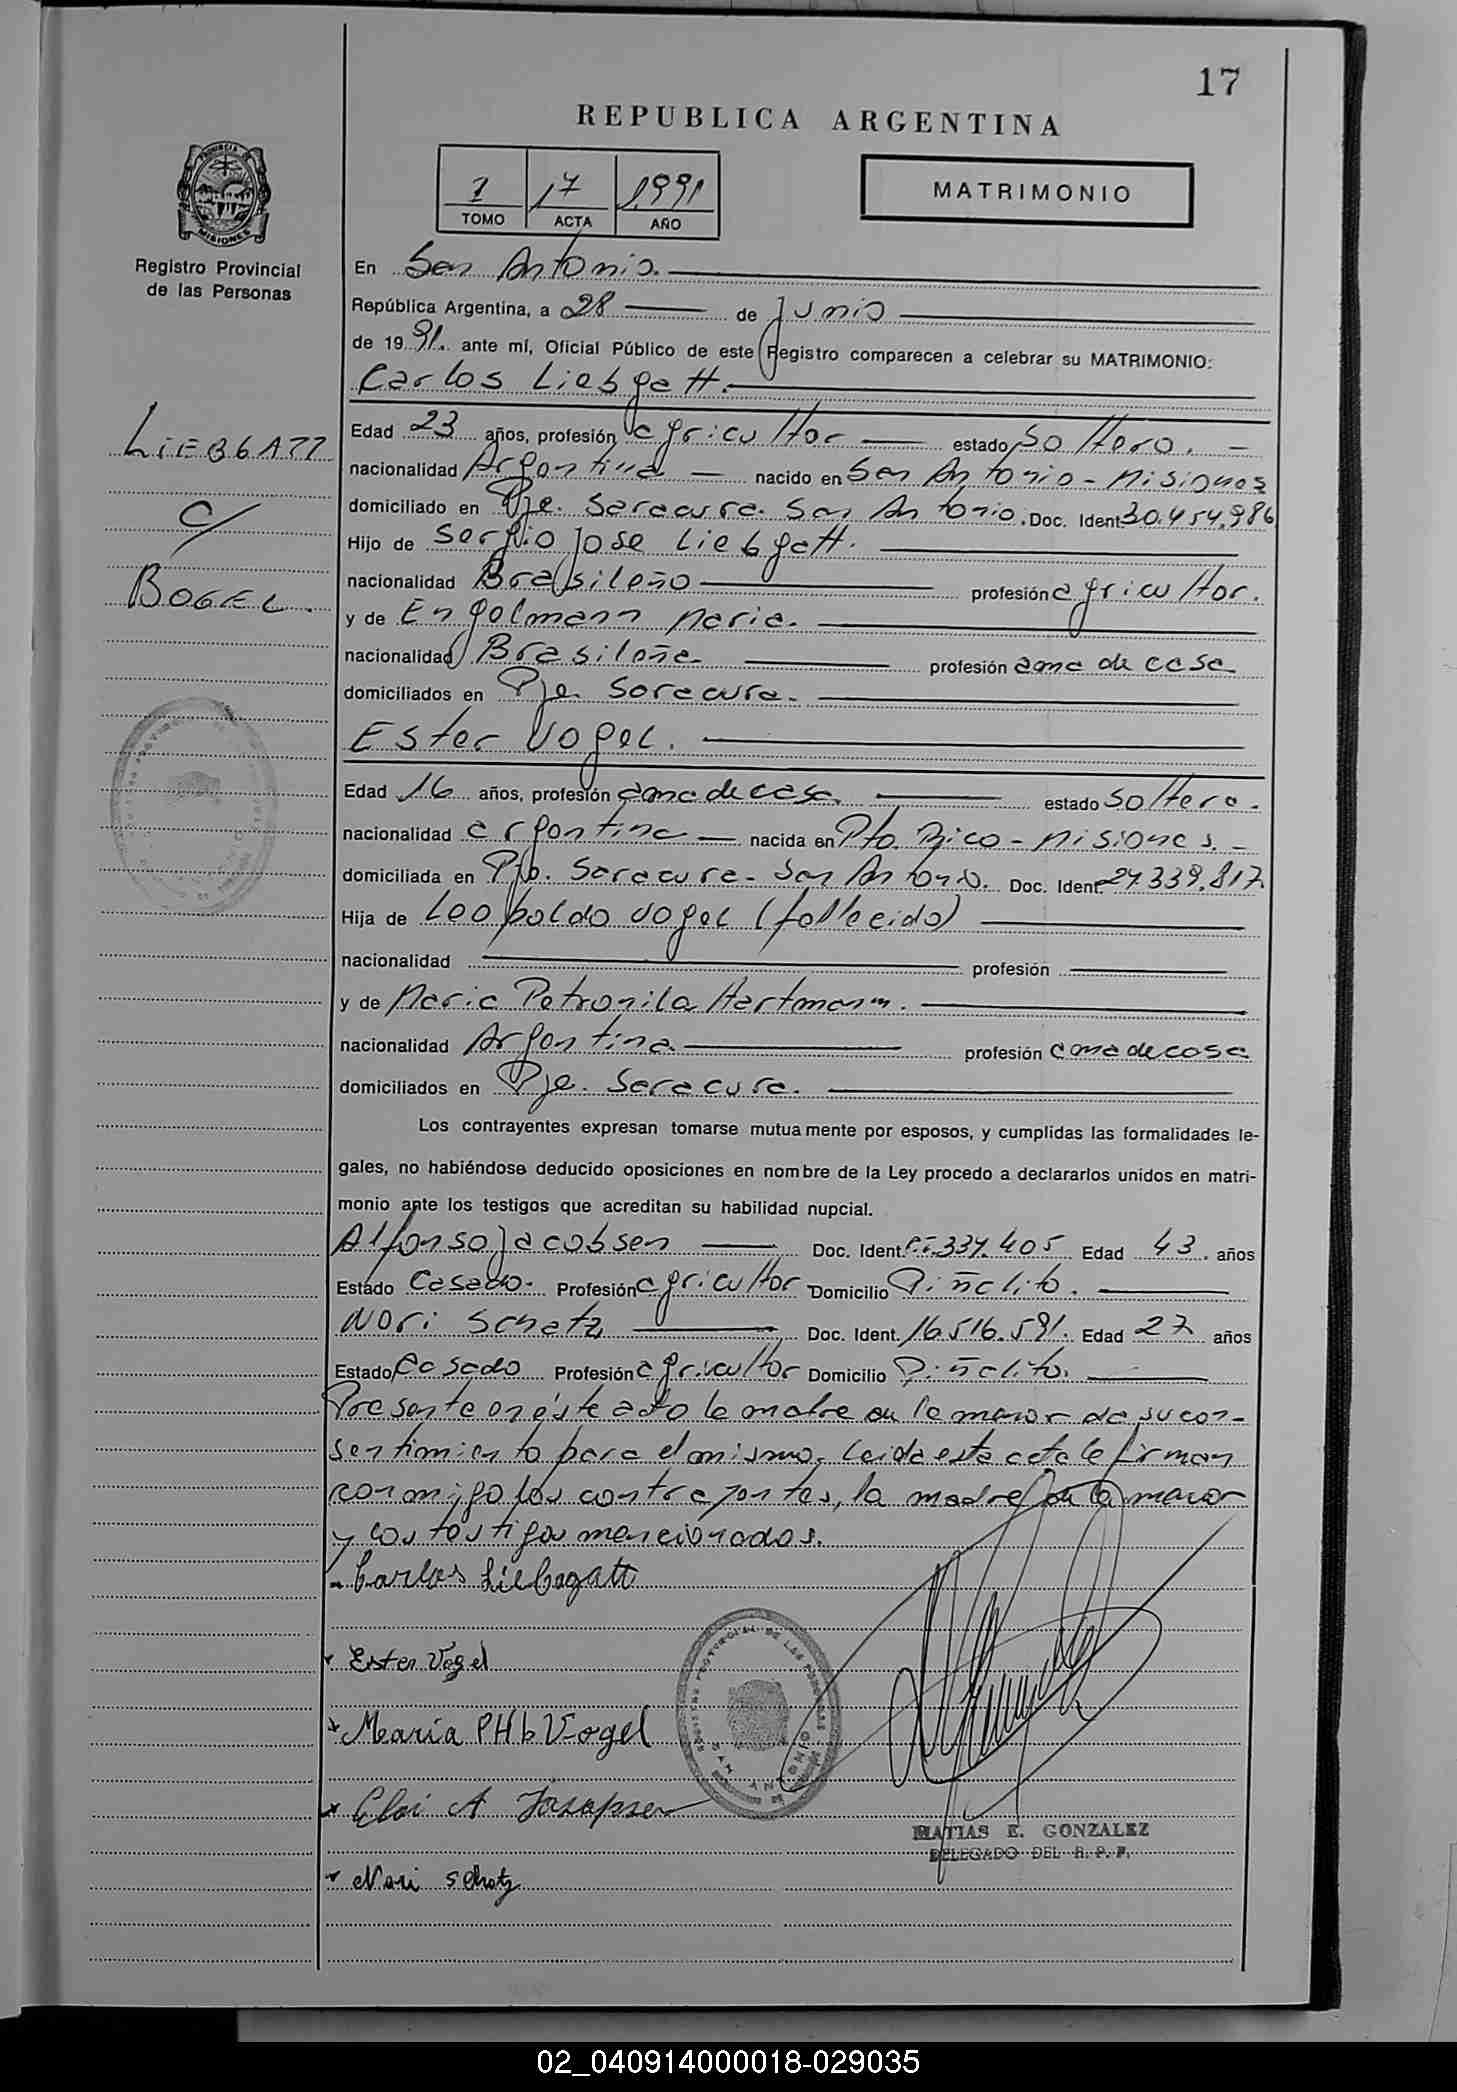 17
REPUBLICA ARGENTINA
1 17 1991
TOMO ACTA AÑO
MATRIMONIO
PROVINCIA DE
MISIONES
Registro Provincial
de las Personas
En San Antonio.
República Argentina, a 28 de Junio
de 1991. ante mí, Oficial Público de este Registro comparecen a celebrar su MATRIMONIO:
Carlos Liebgatt.
LIEBGATT
C/
BOGEL.
Edad 23 años, profesión agricultor estado soltero.
nacionalidad Argentina nacido en San Antonio - Misiones
domiciliado en Pje. Saracura. San Antonio. Doc. Ident. 30.454.986
Hijo de Sergio Jose Liebgatt.
nacionalidad Brasileño profesión agricultor.
y de Engelmann Maria.
nacionalidad Brasileña profesión ama de casa
domiciliados en Pje. Saracura.
Ester Vogel.
Edad 16 años, profesión ama de casa. estado soltera.
nacionalidad argentina nacida en Pto. Rico - Misiones.
domiciliada en Saracura - San Antonio. Doc. Ident. 24.339.817
Hija de Leopoldo Vogel (fallecido)
nacionalidad profesión
y de Maria Petronila Hartmann.
nacionalidad Argentina profesión ama de casa
domiciliados en Pje. Saracura.
Los contrayentes expresan tomarse mutuamente por esposos, y cumplidas las formalidades le-
gales, no habiéndose deducido oposiciones en nombre de la Ley procedo a declararlos unidos en matri-
monio ante los testigos que acreditan su habilidad nupcial.
Alfonso Jacobsen Doc. Ident. 337.405 Edad 43. años
Estado Casado. Profesión agricultor Domicilio Piñalito.
Nori Schatz Doc. Ident. 16.516.591. Edad 27 años
Estado Casado Profesión agricultor Domicilio Piñalito.
Presente en éste acto la madre de la menor da su con-
sentimiento para el mismo, leida esta acta la firman
conmigo los contrayentes, la madre de la menor
y los testigos mencionados.
Carlos Liebgatt
Ester Vogel
Maria PH b Vogel
Nori Schatz
MATIAS E. GONZALEZ
DELEGADO DEL R. P. P.
02_040914000018-029035